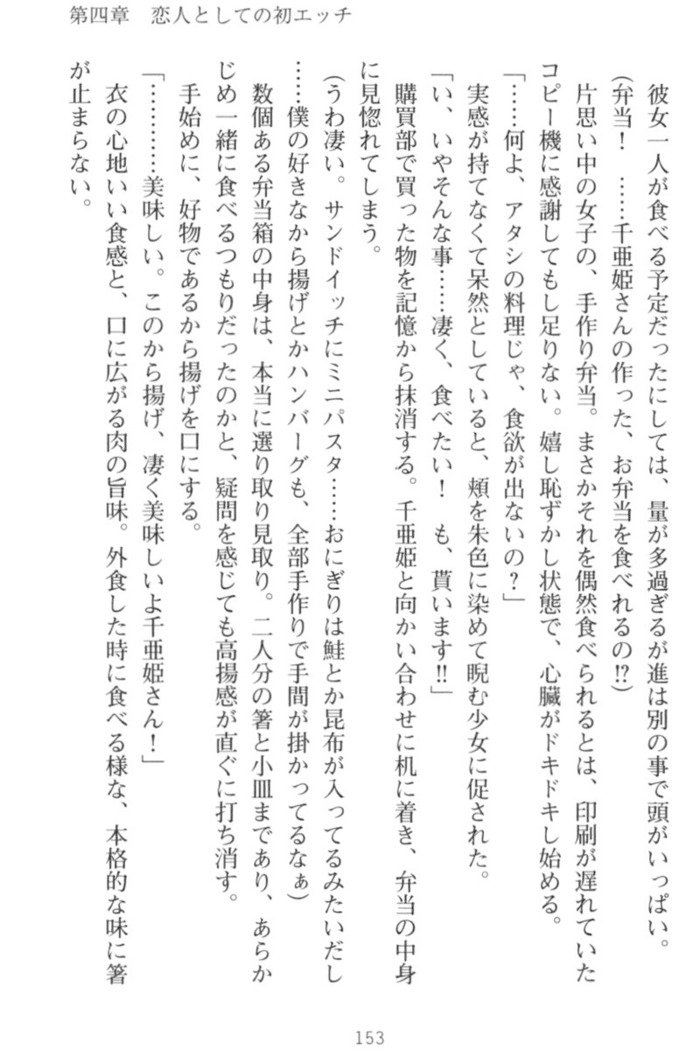 第四章　恋人としての初エッチ
彼女一人が食べる予定だったにしては、量が多過ぎるが進は別の事で頭がいっぱい。
（弁当！　……千亜姫さんの作った、お弁当を食べれるの!?）
片思い中の女子の、手作り弁当。まさかそれを偶然食べられるとは、印刷が遅れていた
コピー機に感謝してもし足りない。嬉し恥ずかし状態で、心臓がドキドキし始める。
「……何よ、アタシの料理じゃ、食欲が出ないの？」
実感が持てなくて呆然としていると、頬を朱色に染めて睨む少女に促された。
「い、いやそんな事……凄く、食べたい！　も、貰います!!」
購買部で買った物を記憶から抹消する。千亜姫と向かい合わせに机に着き、弁当の中身
に見惚れてしまう。
（うわ凄い。サンドイッチにミニパスタ……おにぎりは鮭とか昆布が入ってるみたいだし
……僕の好きなから揚げとかハンバーグも、全部手作りで手間が掛かってるなぁ）
数個ある弁当箱の中身は、本当に選り取り見取り。二人分の箸と小皿まであり、あらか
じめ一緒に食べるつもりだったのかと、疑問を感じても高揚感が直ぐに打ち消す。
手始めに、好物であるから揚げを口にする。
「…………美味しい。このから揚げ、凄く美味しいよ千亜姫さん！」
衣の心地いい食感と、口に広がる肉の旨味。外食した時に食べる様な、本格的な味に箸
が止まらない。
153